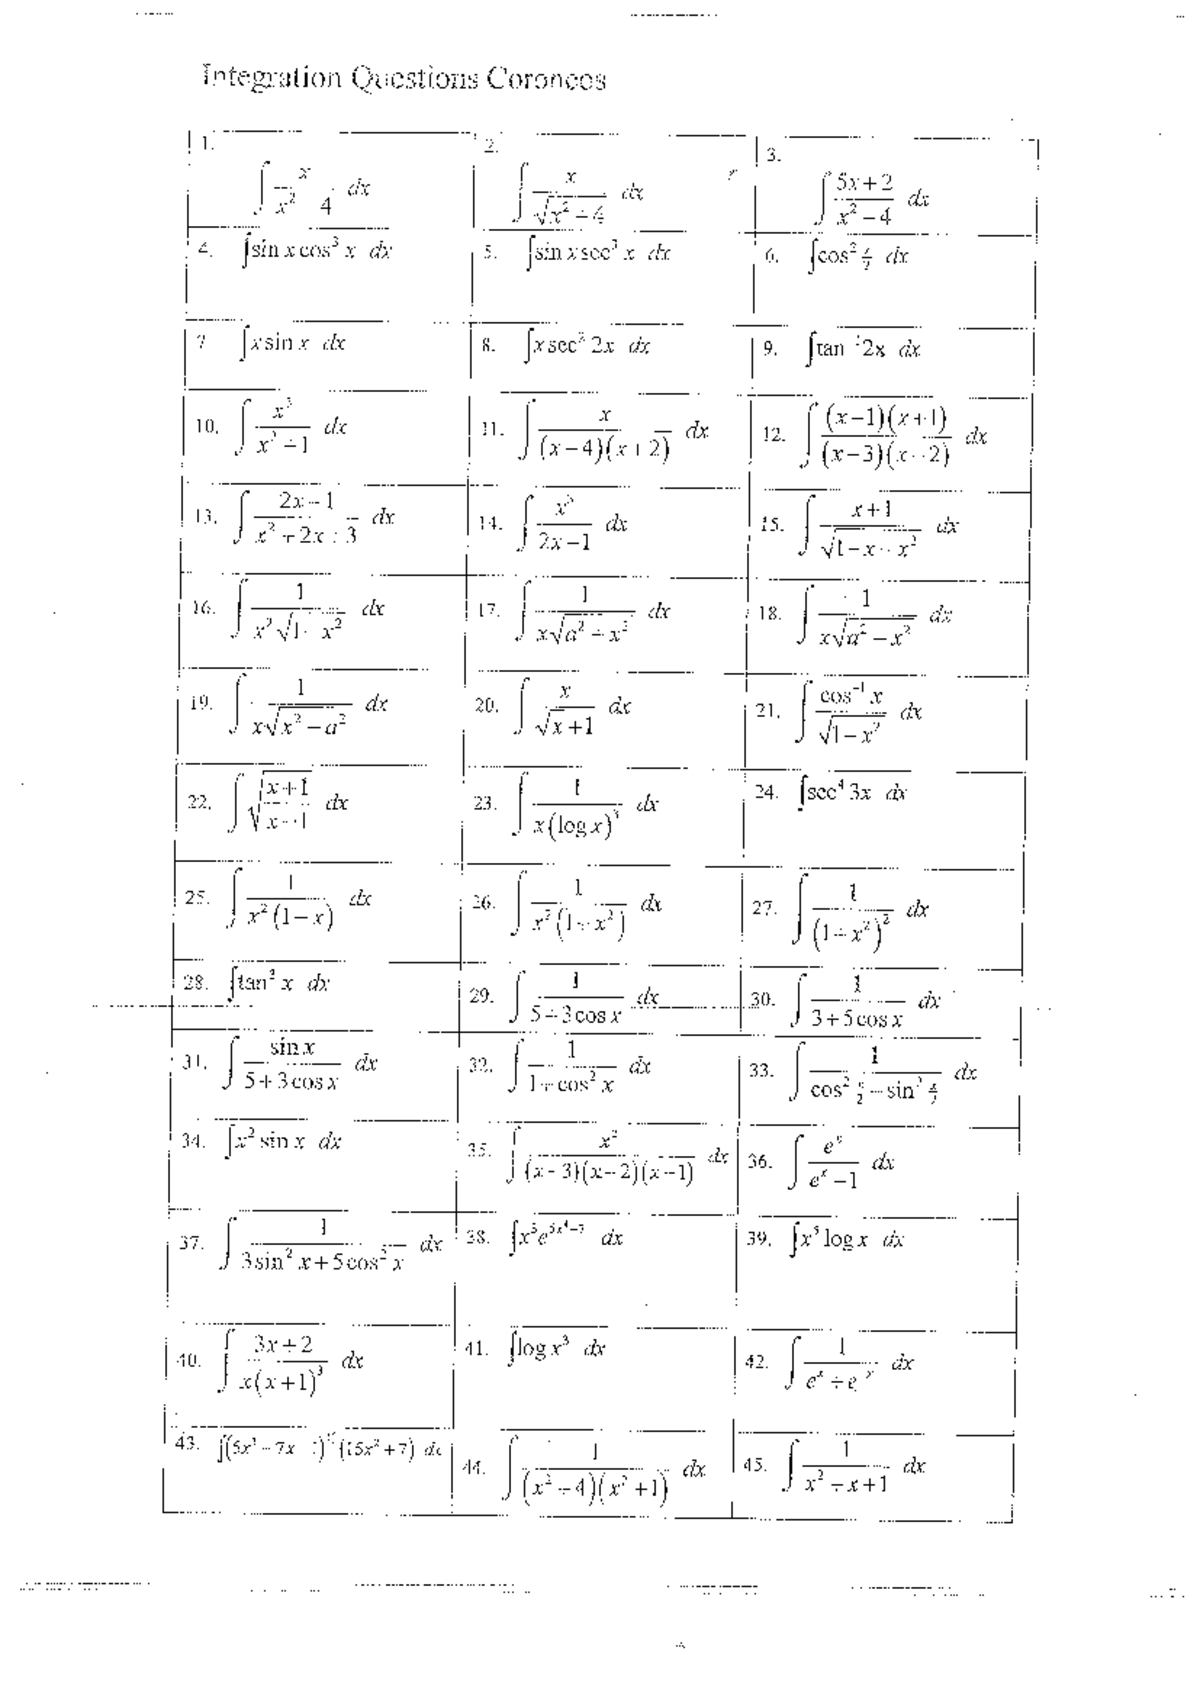 Integration Questions Coroneos
1. ∫ x / x² 4 dx
2. ∫ x / √(x² − 4) dx
3. ∫ (5x + 2) / (x² − 4) dx
4. ∫ sin x cos³ x dx
5. ∫ sin x sec³ x dx
6. ∫ cos² dx
7 ∫ x sin x dx
8. ∫ x sec² 2x dx
9. ∫ tan 2x dx
10. ∫ x³ / (x² − 1) dx
11. ∫ x / ((x − 4)(x + 2)) dx
12. ∫ (x − 1)(x + 1) / ((x − 3)(x 2)) dx
13. ∫ (2x − 1) / (x² + 2x 3) dx
14. ∫ x³ / (2x − 1) dx
15. ∫ (x + 1) / √(1 − x x²) dx
16. ∫ 1 / (x² √(1 x²)) dx
17. ∫ 1 / (x√(a² + x²)) dx
18. ∫ 1 / (x√(a² − x²)) dx
19. ∫ 1 / (x√(x² − a²)) dx
20. ∫ x / √(x + 1) dx
21. ∫ cos⁻¹ x / √(1 − x²) dx
22. ∫ √((x + 1) / (x 1)) dx
23. ∫ 1 / (x(log x)³) dx
24. ∫ sec⁴ 3x dx
25. ∫ 1 / (x² (1 − x)) dx
26. ∫ 1 / (x² (1 + x²)) dx
27. ∫ 1 / (1 + x²)² dx
28. ∫ tan³ x dx
29. ∫ 1 / (5 + 3 cos x) dx
30. ∫ 1 / (3 + 5 cos x) dx
31. ∫ sin x / (5 + 3 cos x) dx
32. ∫ 1 / (1 + cos² x) dx
33. ∫ 1 / (cos² x/2 − sin² x/2) dx
34. ∫ x² sin x dx
35. ∫ x² / ((x − 3)(x − 2)(x − 1)) dx
36. ∫ eˣ / (eˣ − 1) dx
37. ∫ 1 / (3 sin² x + 5 cos² x) dx
38. ∫ x³ dx
39. ∫ x³ log x dx
40. ∫ (3x + 2) / (x(x + 1)³) dx
41. ∫ log x³ dx
42. ∫ 1 / (eˣ + e) dx
43. ∫ (5x³ 7x ) (15x² + 7) dx
44. ∫ 1 / ((x² + 4)(x² + 1)) dx
45. ∫ 1 / (x² + x + 1) dx